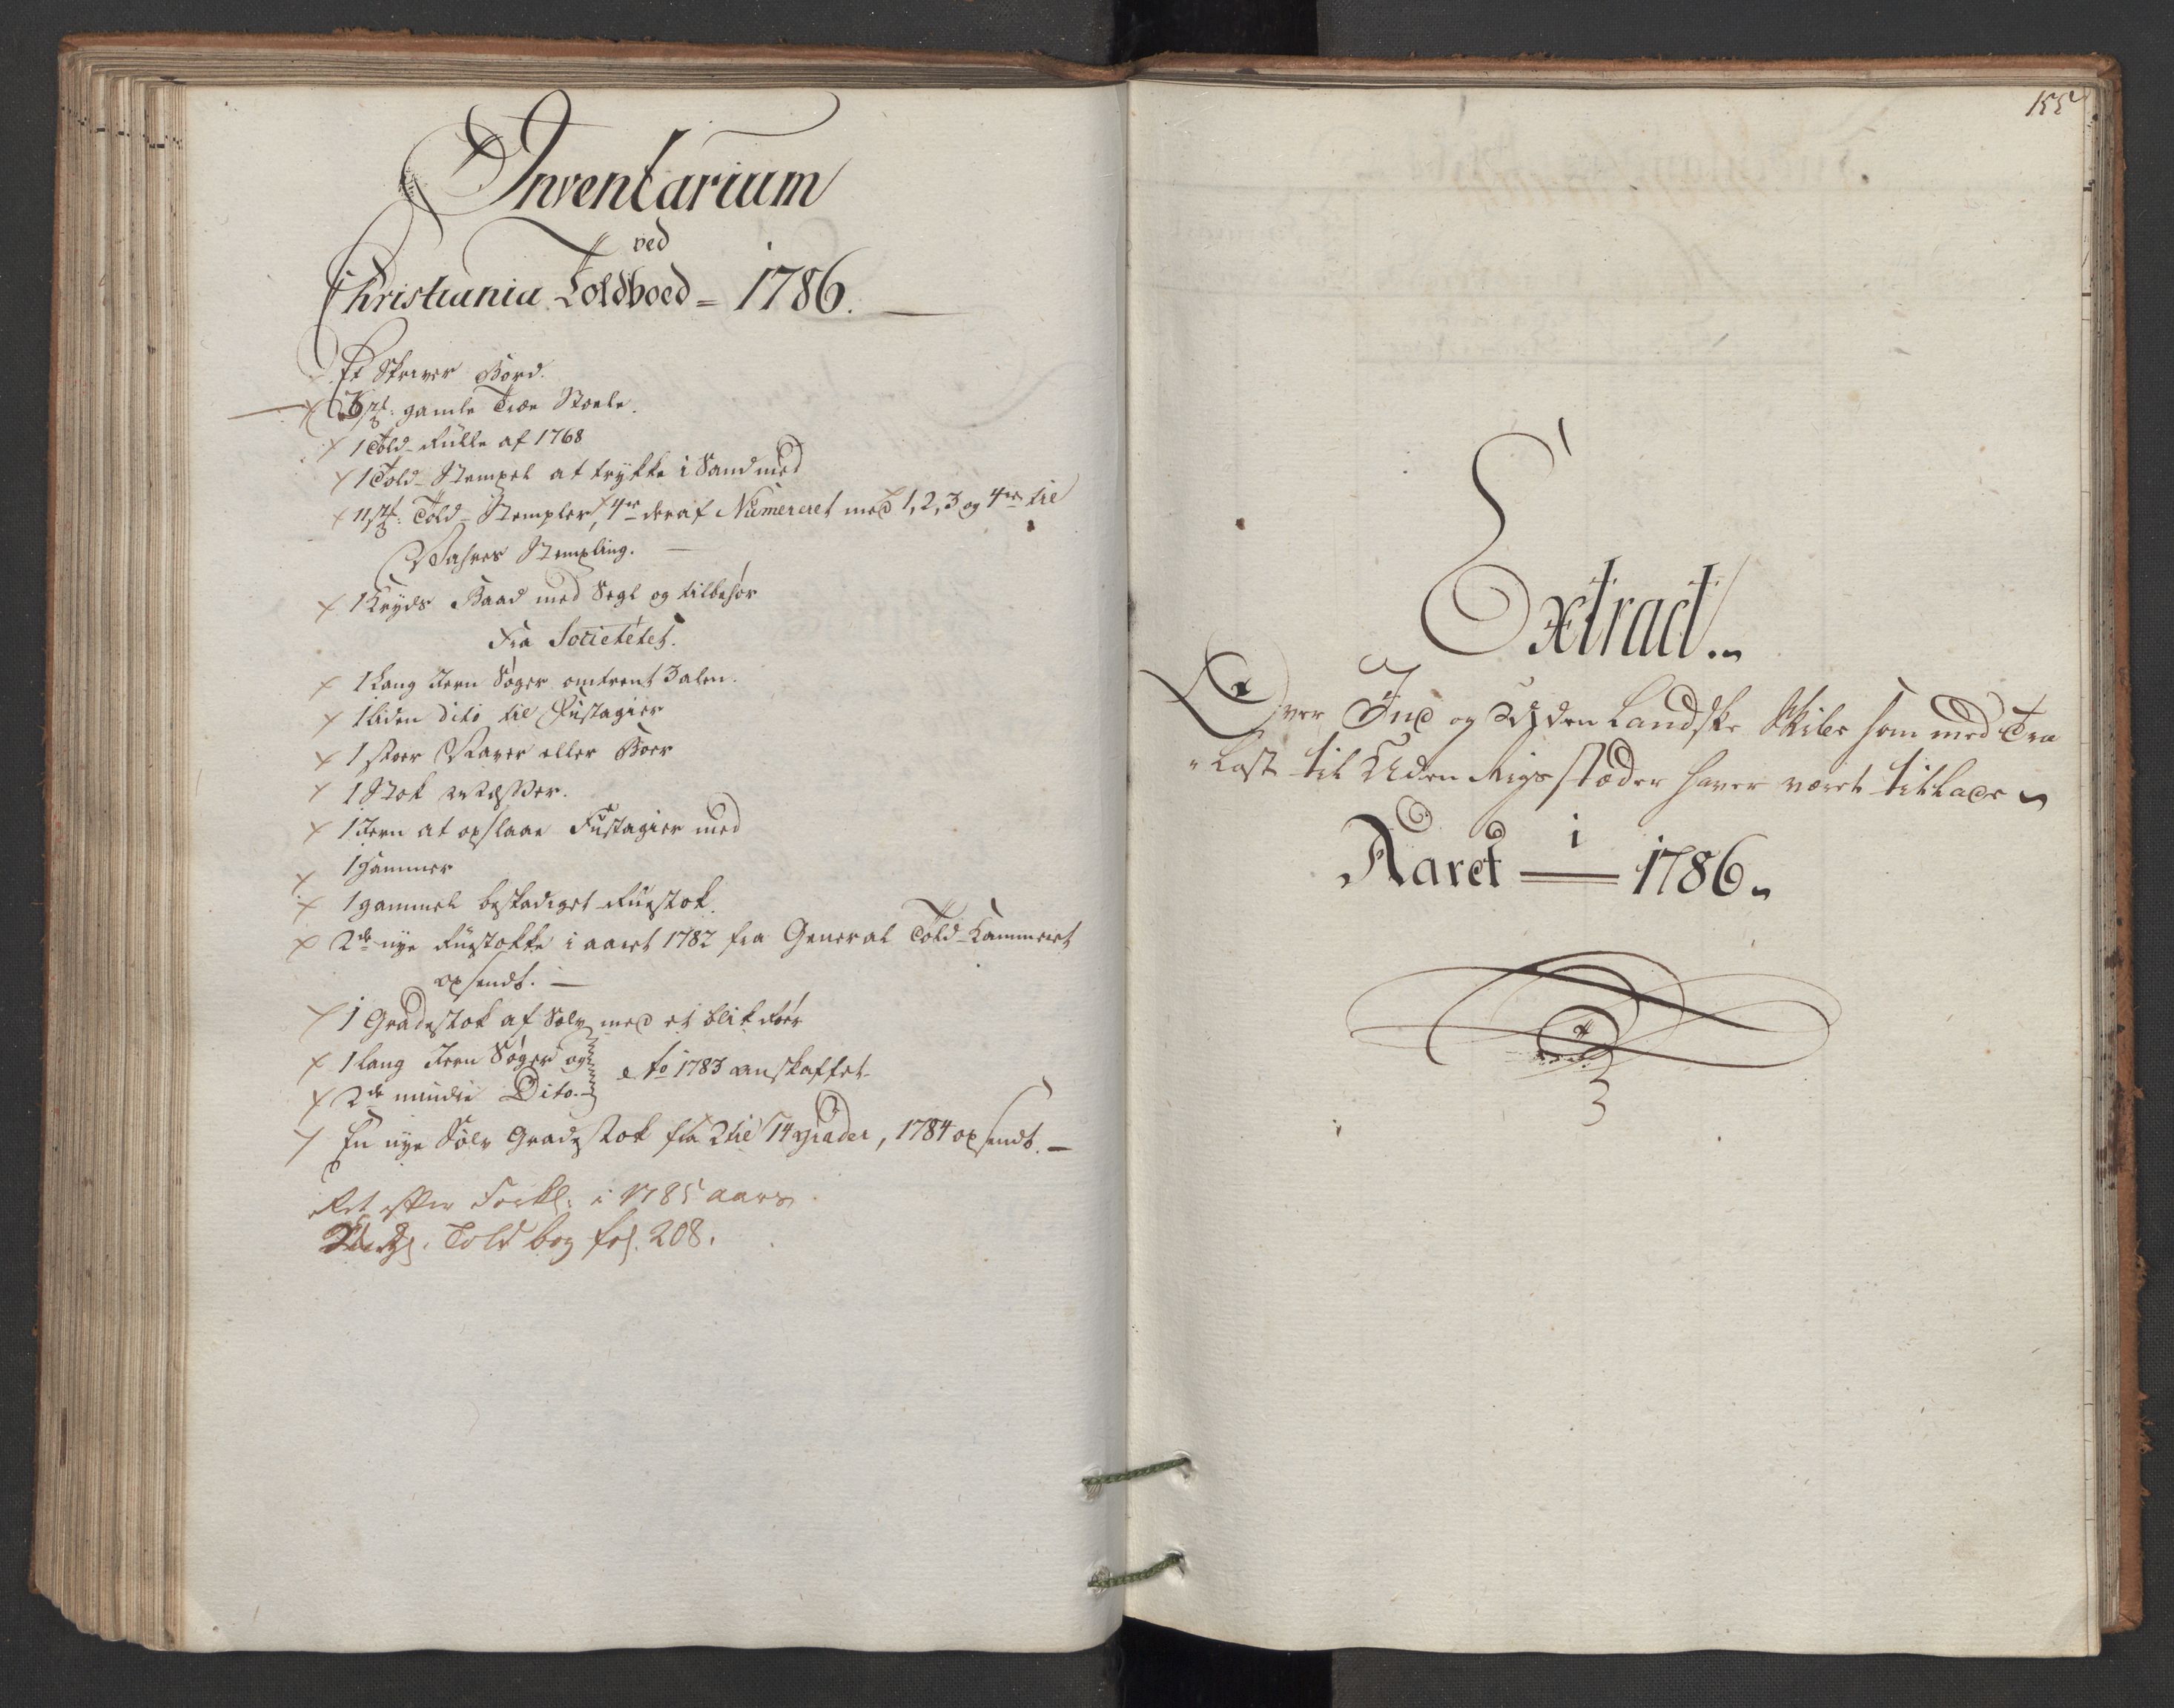 Inventarium
ved
Christiania Toldboed = 1786.
Et Skriver Bord.
6 st: gamle Træe Stoele.
1 Told-Rulle af 1768
1 Told-Stempel at trykke i Sand med
11 st: Told-Stempler, 4re deraf Numereret med 1, 2, 3 og 4re til
Vahres Stempling.
1 Kryds Baad med Segl og tilbehør
Fra Societetet.
1 Lang Jern Søger omtrent 3 alen.
1 liden dito til Fustagier
1 stoer Naver eller Boer
1 Stok
1 Jern at opslaae Fustagier med
1 Hammer
1 gammel beskadiget Ruestok.
2de nye Ruestokke i aaret 1782 fra General Told-Kammeret
opsendt. —
1 Gradestok af Sølv med et blik Roer
1 lang Jern Søger og
2de mindre Dito. 1783 anskaffet.
En nye Sølv Gradestok fra 2 til 14 grader, 1784 opsendt. —
Ret efter Forkl: i 1785 aars
Told bog fol. 208.
155
Extract
Over Ind og Uden Landske Skibe som med Træ
Last til Uden Rigs stæder haver været tillade
i
Aaret — 1786